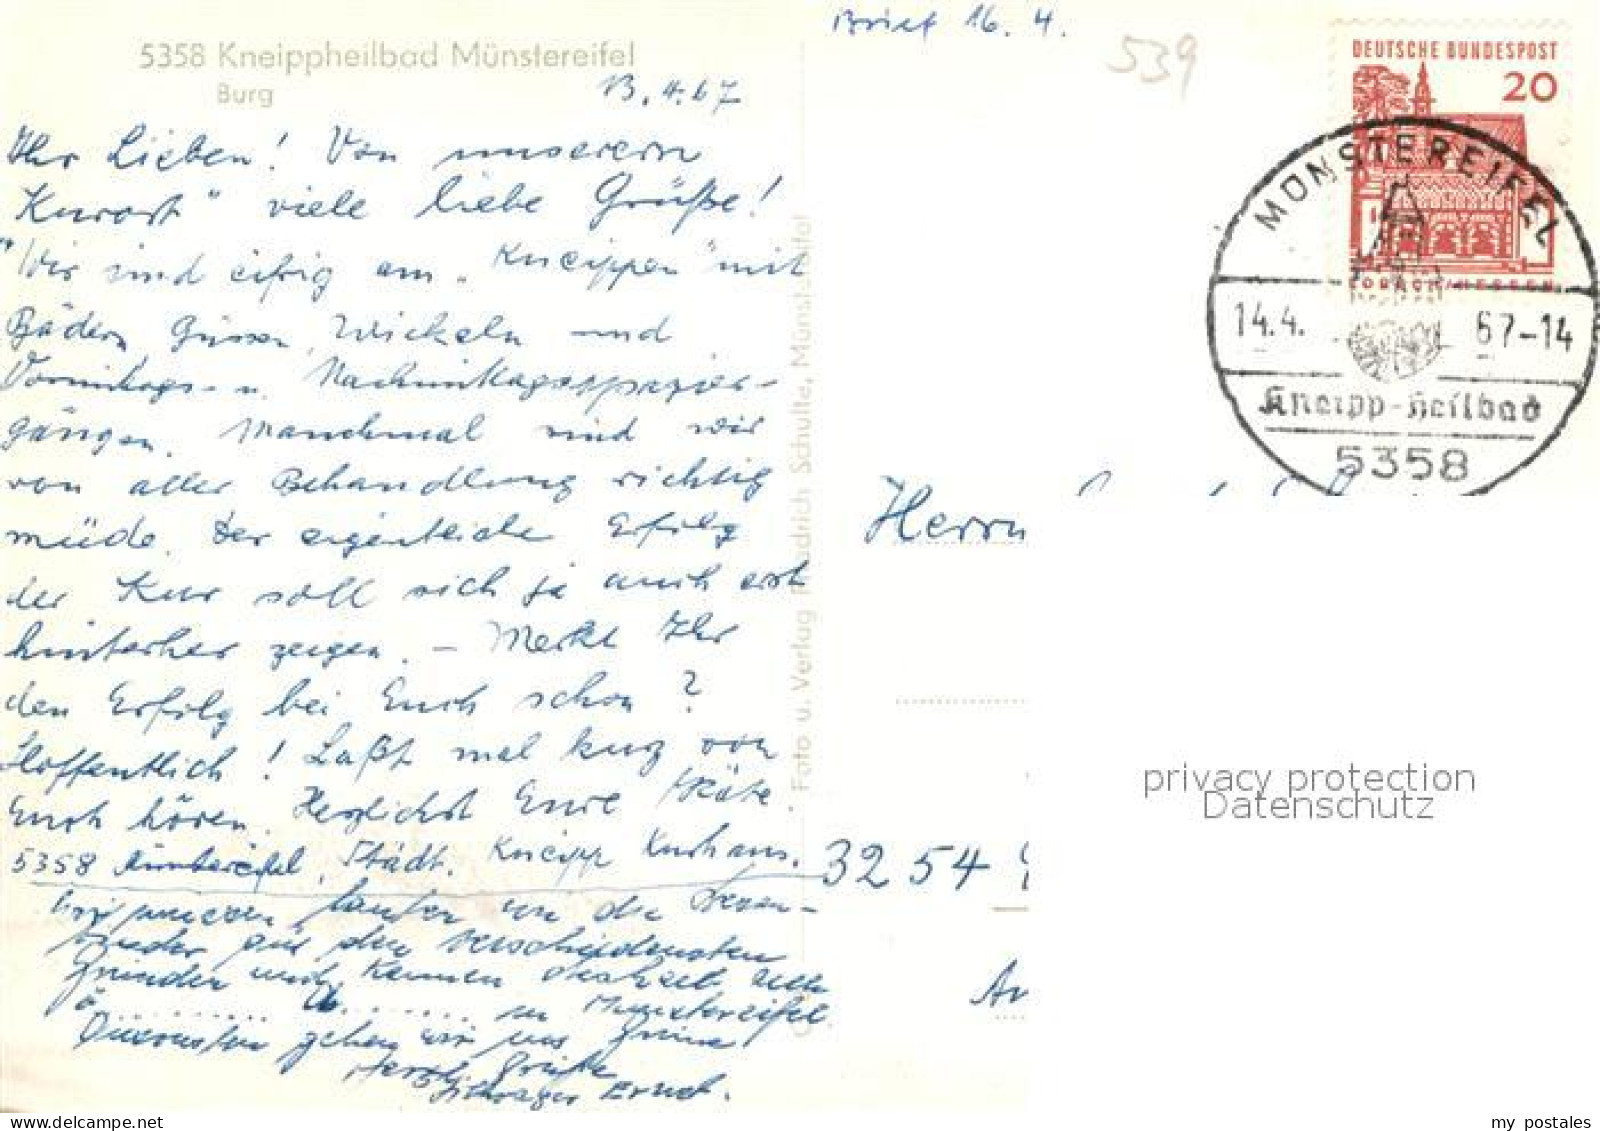 5358 Kneippheilbad Münstereifel
Burg
13.4.67
Ihr Lieben! Von unserem
"Kurort" viele liebe Grüße!
Wir sind eifrig am "Kneippen" mit
Bädern, Güssen, Wickeln und
Vormittags- u. Nachmittagsspazier-
gängen. Manchmal sind wir
von aller Behandlung richtig
müde. Der eigentliche Erfolg
der Kur soll sich ja auch erst
hinterher zeigen. – Merkt Ihr
den Erfolg bei Euch schon?
Hoffentlich! Laßt mal kurz von
Euch hören. Herzlichst Eure Käte.
5358 Münstereifel, Städt. Kneipp Kurhaus.
Wir müssen laufen
aus den verschiedensten
Gründen und kennen derzeit
in Münstereifel
gehen wir ins Grüne
Herzl. Grüße
Schwager Ernst.
Foto u. Verlag Friedrich Schulte, Münstereifel
Brief 16. 4.
539
DEUTSCHE BUNDESPOST
20
LORSCH/HESSEN
MÜNSTEREIFEL
14.4. 67-14
Kneipp-Heilbad
5358
Herrn
3254
privacy protection
Datenschutz
my postales